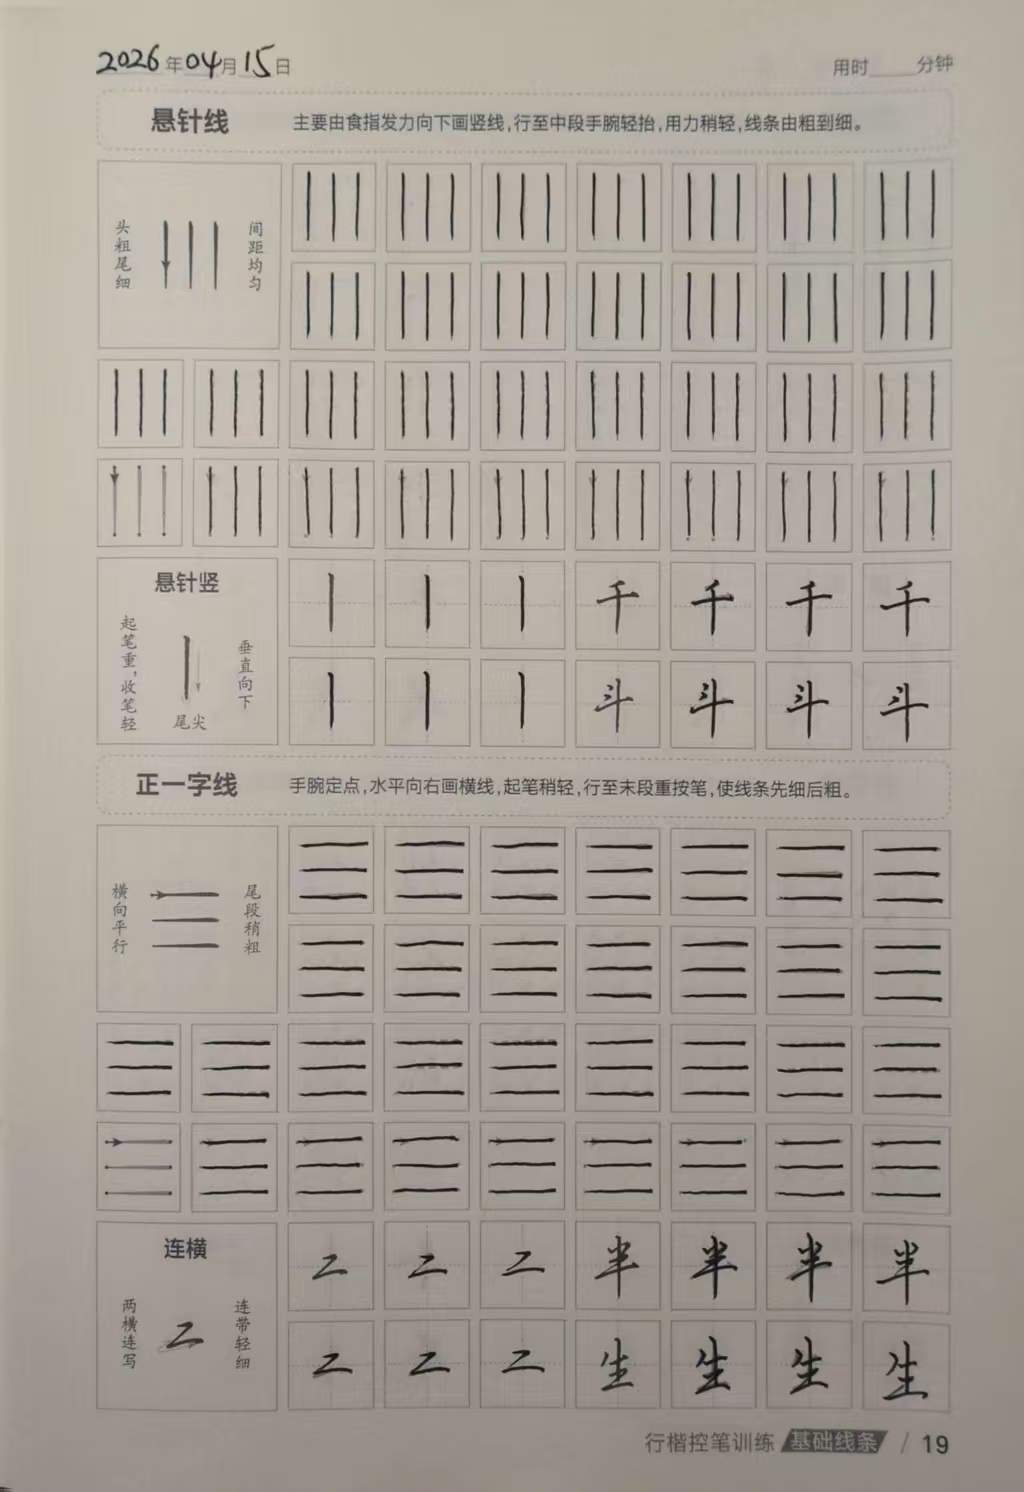 2026年04月15日 用时 分钟
悬针线 主要由食指发力向下画竖线,行至中段手腕轻抬,用力稍轻,线条由粗到细。
头粗尾细
间距均匀
悬针竖
起笔重,收笔轻
垂直向下
尾尖
千 千 千 千
斗 斗 斗 斗
正一字线 手腕定点,水平向右画横线,起笔稍轻,行至末段重按笔,使线条先细后粗。
横向平行
尾段稍粗
连横
两横连写
连带轻细
二 二 二 半 半 半 半
二 二 二 生 生 生 生
二
行楷控笔训练 基础线条 / 19